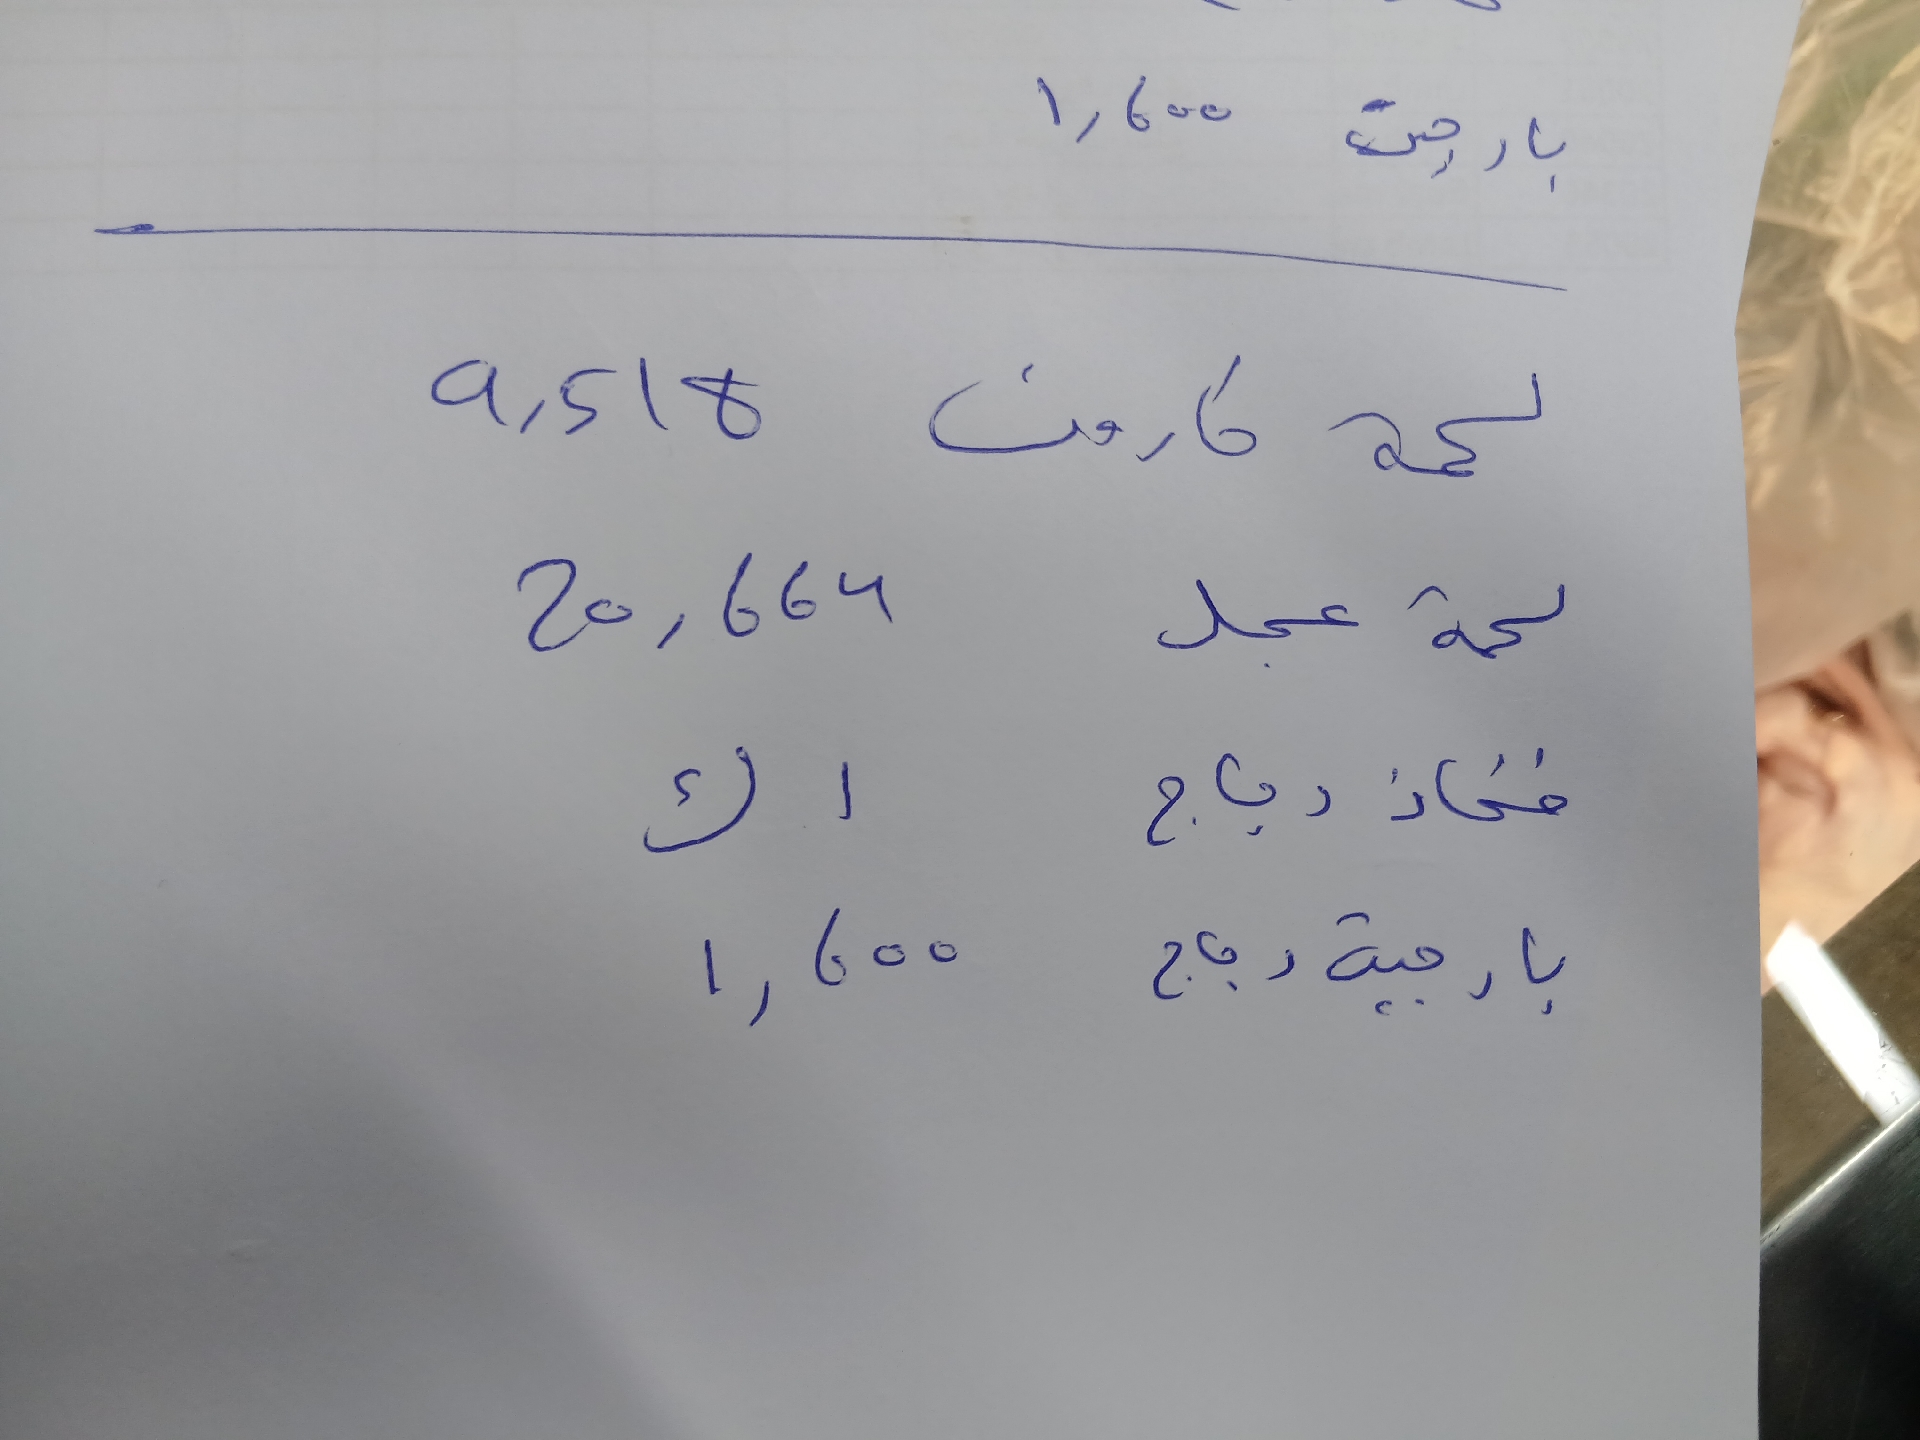 بارجت 1,600
لحمة كارمن 9,518
لحمة عجل 20,664
فخاذ دجاج 1 ك
بارجية دجاج 1,600